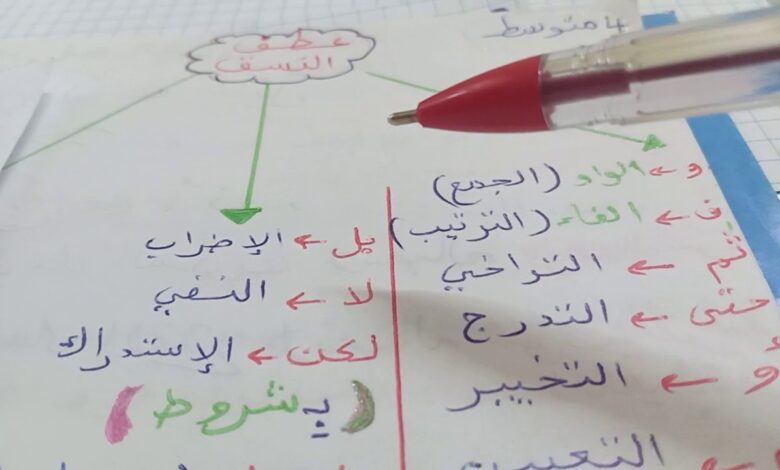 4 متوسط
عطف
النسق
و ← الواو (الجمع)
ف ← الفاء (الترتيب)
ثم ← التراخي
حتى ← التدرج
أو ← التخيير
التعيين
بل ← الإضراب
لا ← النفي
لكن ← الإستدراك
(بشروط)